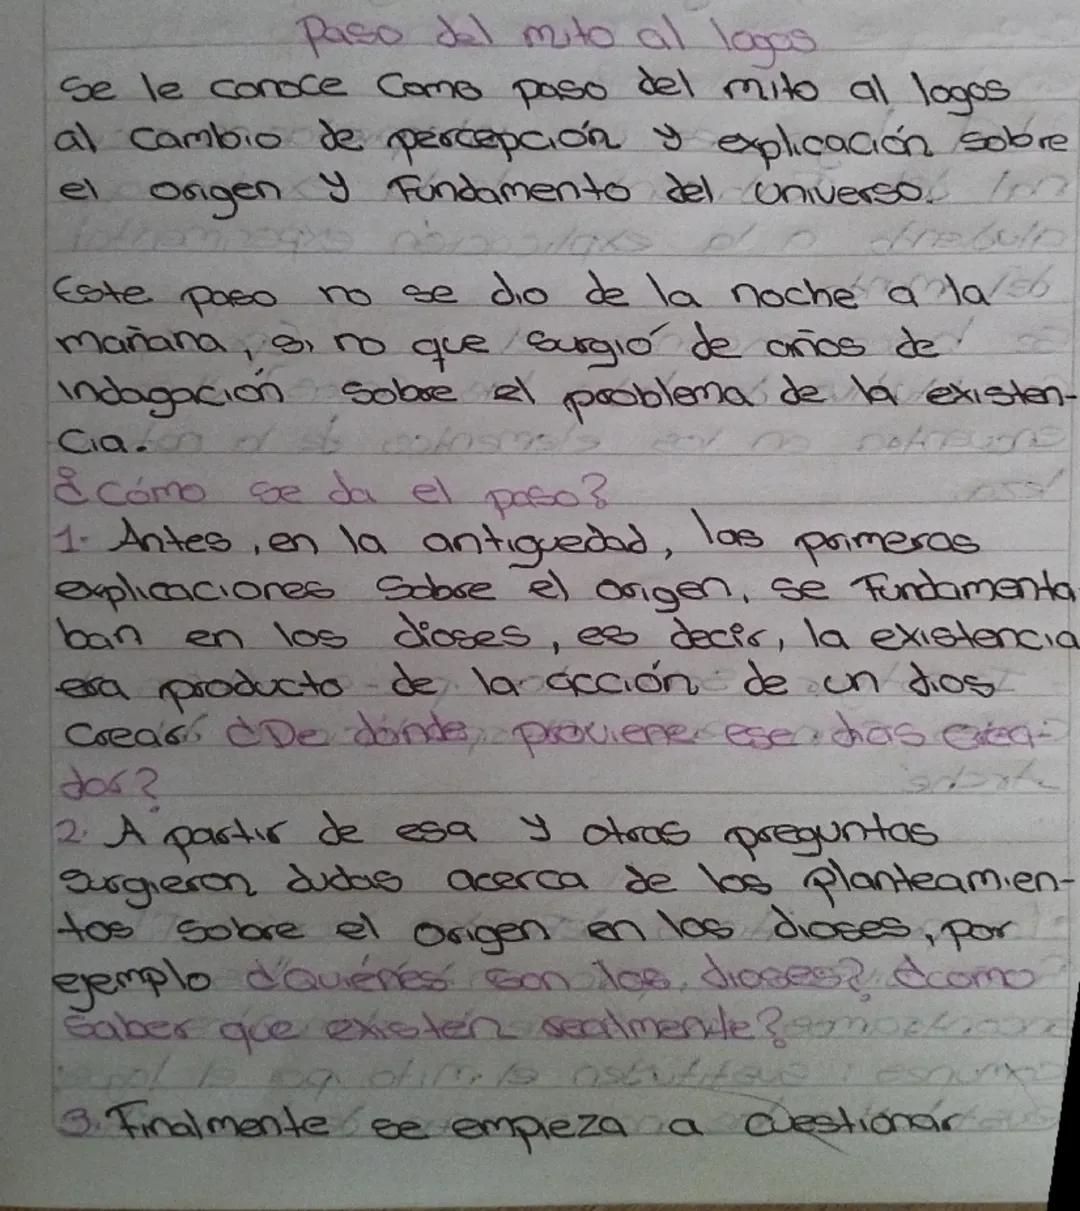 Paso del mito al logos
Se le conoce Como paso del mito al logos
al cambio de percepción y explicación sobre
el origen y Fundamento del universo.
Este paso no se dio de la noche a la
mañana, si no que surgió de años de
indagación sobre el problema de la existen-
cia.
¿cómo se da el paso?
1. Antes, en la antiguedad, las primeras
explicaciones sobre el origen, se Fundamenta
ban en los dioses, es decir, la existencia
era producto de la acción de un dios
Creador ¿De dónde proviene ese dios crea-
dor?
2. A partir de esa y otras preguntas
surgieron dudas acerca de los planteamien-
tos sobre el origen en los dioses, por
ejemplo ¿Quiénes son los dioses? ¿como
saber que existen realmente?
3. Finalmente se empieza a cuestionar